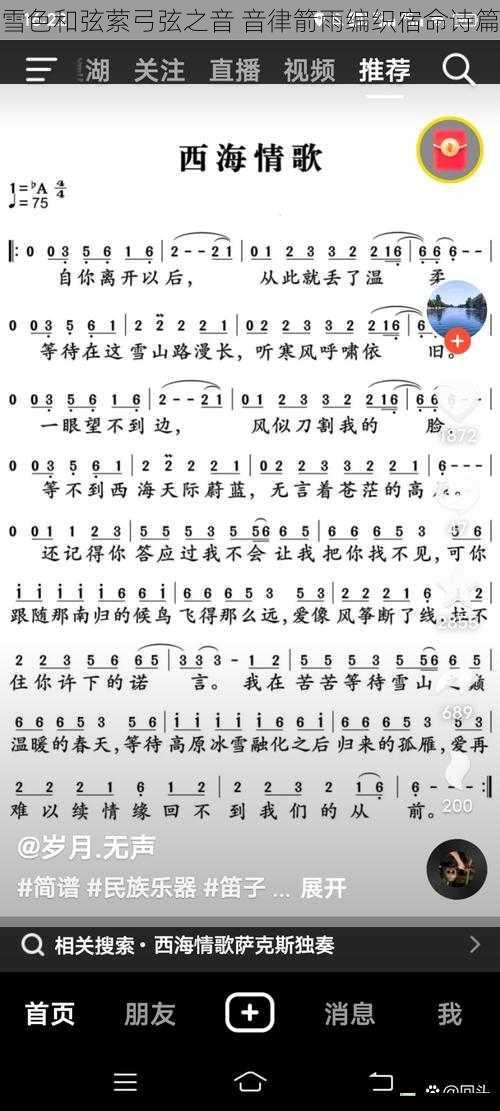 雪色和弦萦弓弦之音 音律箭雨编织宿命诗篇
湖 关注 直播 视频 推荐
西海情歌
1=♭A 4/4
♩=75
0 0 3 5 6 1 6 | 2 - - 2 1 | 0 1 2 3 3 2 2 1 6 | 6 6 6 - - |
自你离开以后， 从此就丢了温 柔
0 0 3 5 6 1 | 2 2 2 2 2 1 | 0 2 2 3 3 2 2 1 6 |
等待在这雪山路漫长，听寒风呼啸依 旧。
0 0 3 5 6 1 6 | 2 - - 2 1 | 0 1 2 3 3 2 2 1 6 | 6 6 6
一眼望不到边， 风似刀割我的 脸。
0 0 3 5 6 1 | 2 2 2 2 2 1 | 0 2 2 3 3 2 2 1 | 6 - - - |
等不到西海天际蔚蓝，无言着苍茫的高
0 0 1 1 2 3 | 5 5 5 5 3 5 5 6 6 5 | 6 6 5 6 5 3 5 3
还记得你答应过我不会让我把你找不见，可你
i i i i i 6 i 6 | 6 6 6 5 3 5 3 | 2 2 2 2 1 6 1 2
跟随那南归的候鸟飞得那么远，爱像风筝断了线，拉不
2 2 3 5 6 6 5 | 3 3 3 - 1 2 | 3 5 5 2 3 5 5 6 6 5
住你许下的诺 言。我在苦苦等待雪山之巅
6 6 6 5 3 5 6 | i i i i i 6 6 i | 6 6 6 5 3 5 3
温暖的春天，等待高原冰雪融化之后归来的孤雁，爱再
2 2 2 1 6 1 2 | 2 2 2 3 2 1 6 | 6 - - - :‖
难以续情缘回不到我们的从 前。
1872
689
200
@岁月.无声
#简谱 #民族乐器 #笛子 ... 展开
相关搜索 · 西海情歌萨克斯独奏
首页 朋友 消息 我